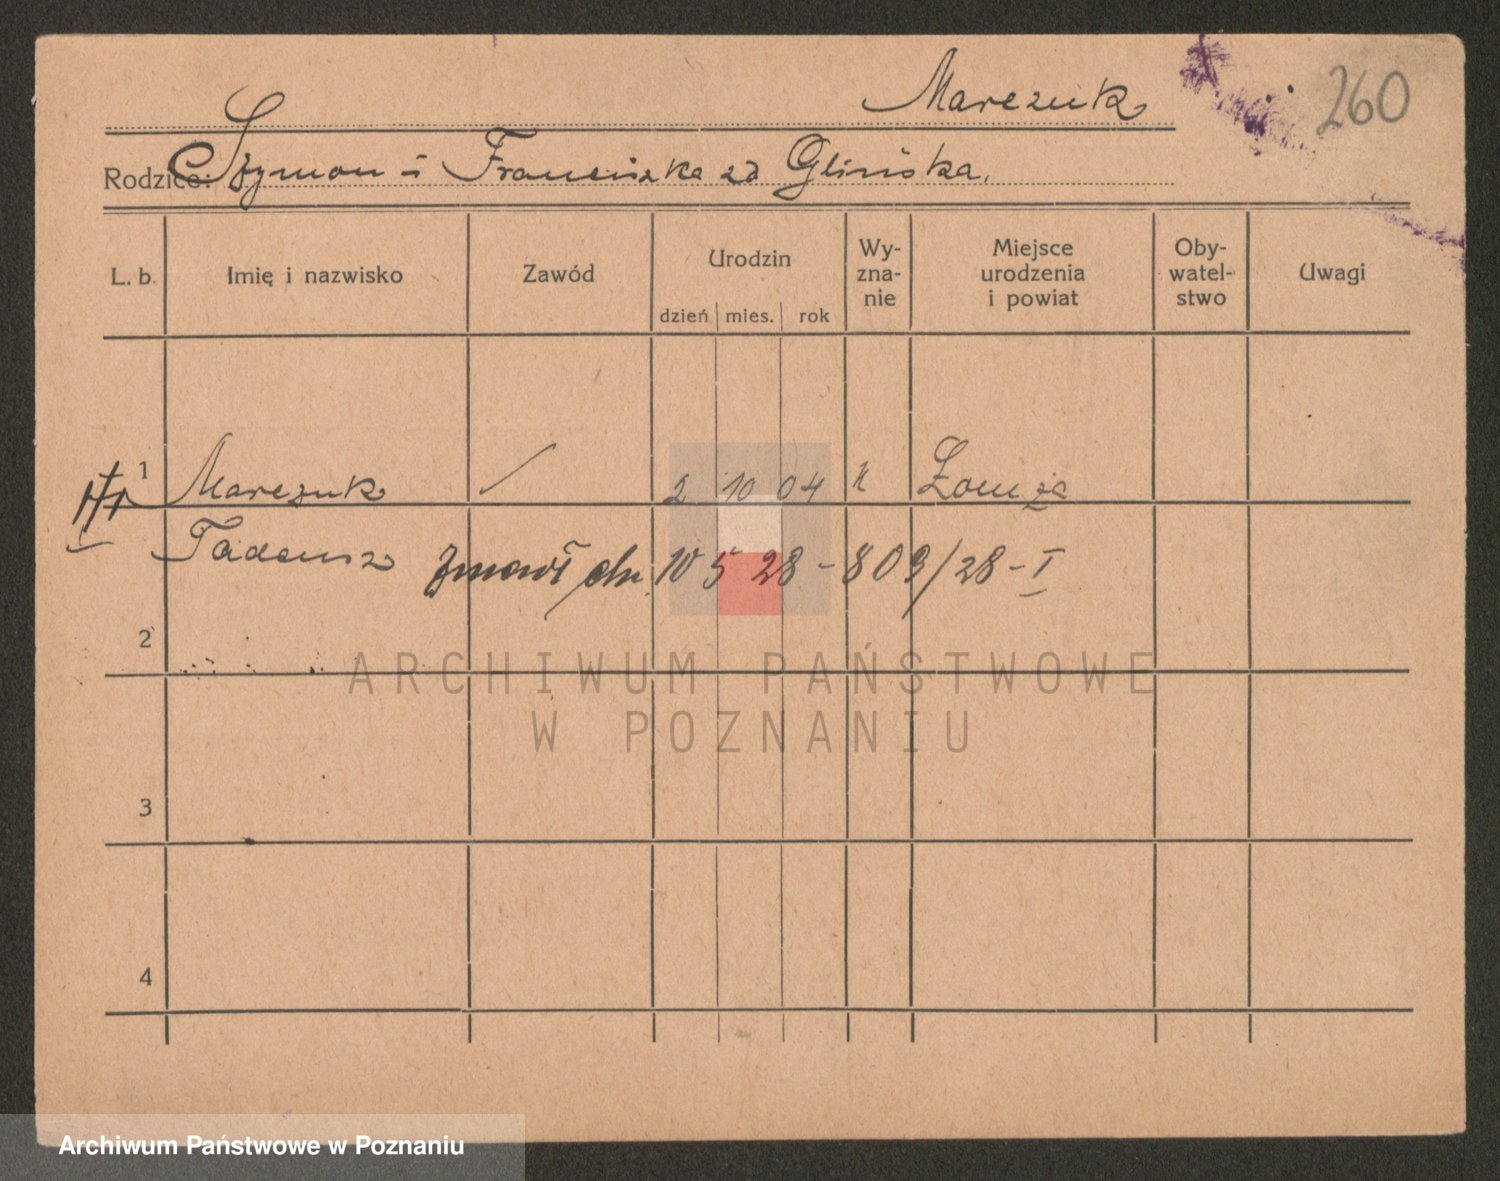 260
Marczuk
Rodzice: Szymon i Franciszka zd Glińska.
L. b. Imię i nazwisko Zawód Urodzin dzień mies. rok Wy-zna-nie Miejsce urodzenia i powiat Oby-watel-stwo Uwagi
1 Marczuk 2 10 04 k Łomża
Tadeusz zmarł dn. 10 5 28 – 809/28 – I
2
ARCHIWUM PAŃSTWOWE
W POZNANIU
3
4
Archiwum Państwowe w Poznaniu